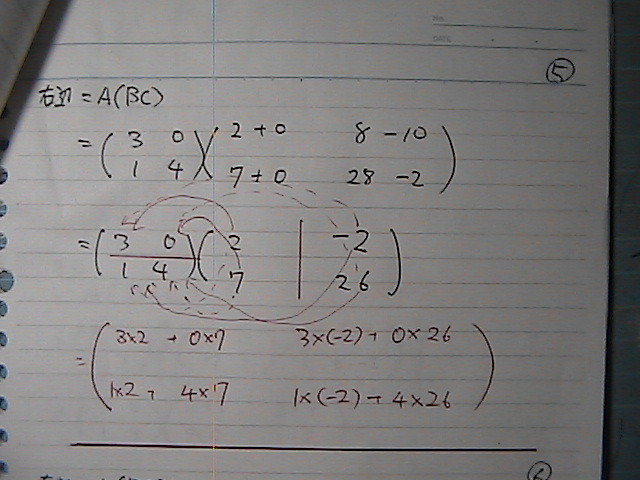 No.
DATE
⑤
右辺 = A(BC)
= ( 3 0 ) ( 2 + 0 8 - 10 )
( 1 4 ) ( 7 + 0 28 - 2 )
= ( 3 0 ) ( 2 | -2 )
( 1 4 ) ( 7 | 26 )
= ( 3×2 + 0×7 3×(-2) + 0×26 )
( 1×2 + 4×7 1×(-2) + 4×26 )
⑥